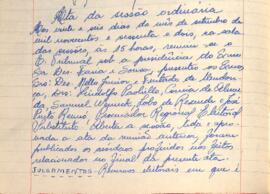 Ata da sessão ordinária
Aos vinte e seis dias do mês de setembro de
mil novecentos e sessenta e dois, na sala
das sessões, às 15 horas, reuniu-se o
E. Tribunal sob a presidência do Exmo
Sr. Des. Faria e Sousa, presentes os Exmos
Srs. Des. Mello Júnior e Furtado de Mendon
ça, drs. Lindolfo Paolielo, Correia de
da, Samuel Werneck, Lobo de Resende e José
Pinto Renó, Procurador Regional Eleitoral
Substituto. Aberta a sessão, lida e apro
vada a ata da reunião anterior, foram
publicados os acórdãos proferidos nos feitos
relacionados no final da presente ata.
JULGAMENTOS: Recursos eleitorais em que é